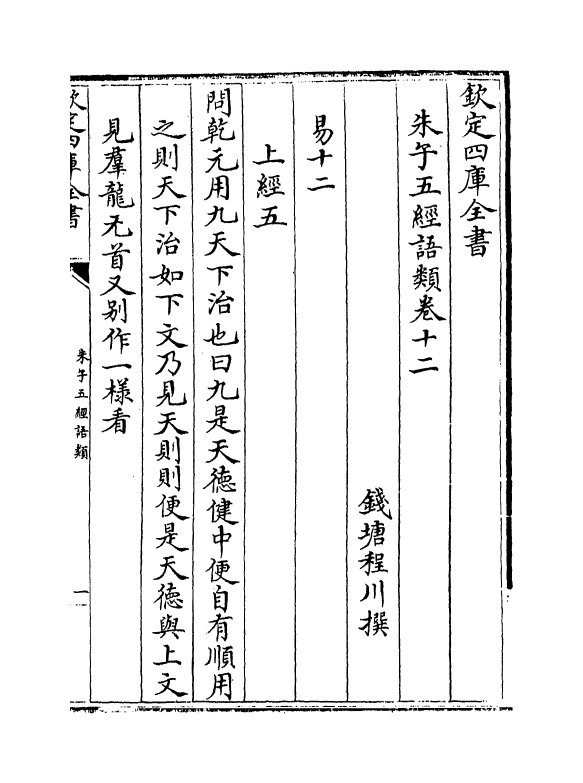 欽定四庫全書
朱子五經語類卷十二
錢塘程川撰
易十二
上經五
問乾元用九天下治也曰九是天德健中便自有順用
之則天下治如下文乃見天則則便是天德與上文
見羣龍无首又别作一樣看
欽定四庫全書
朱子五經語類
一